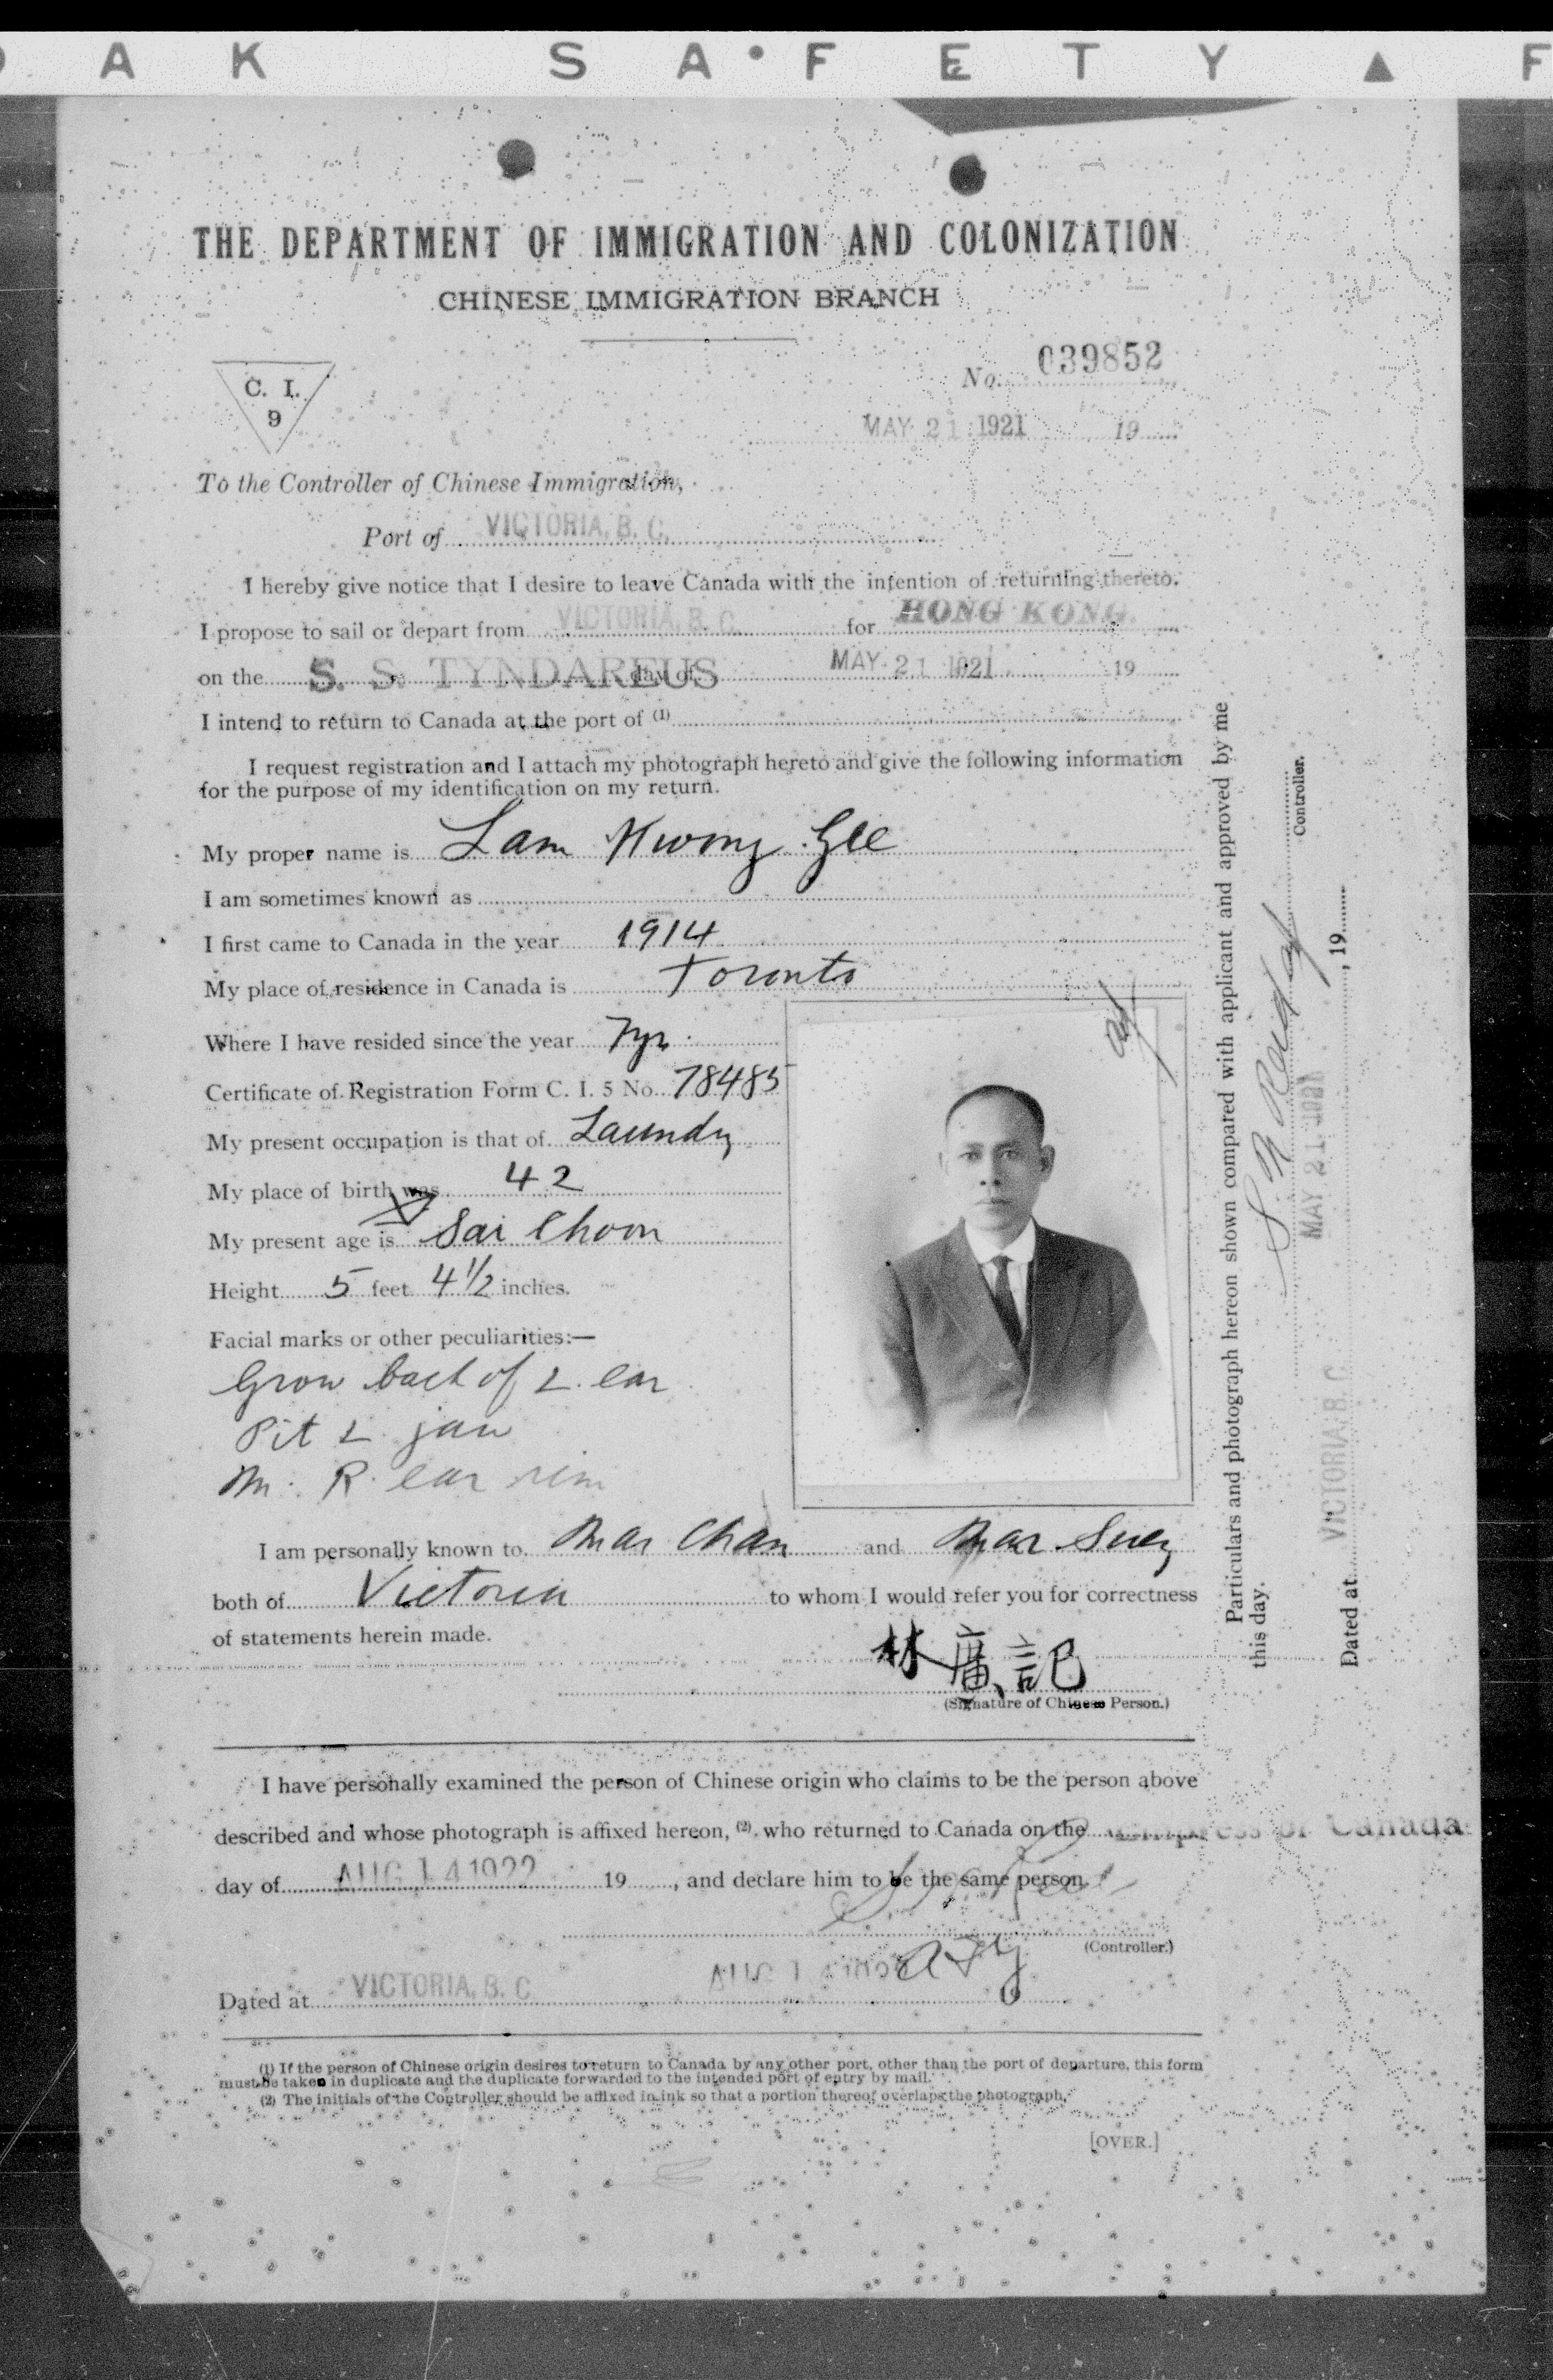 A K S A • F E T Y ▲ F
THE DEPARTMENT OF IMMIGRATION AND COLONIZATION
CHINESE IMMIGRATION BRANCH
C. I.
9
No. 039852
MAY 21 1921 19
To the Controller of Chinese Immigration,
Port of VICTORIA, B. C.
I hereby give notice that I desire to leave Canada with the intention of returning thereto.
I propose to sail or depart from VICTORIA, B. C. for HONG KONG.
on the S. S. TYNDAREUS day of MAY 21 1921 19
I intend to return to Canada at the port of (1)
I request registration and I attach my photograph hereto and give the following information
for the purpose of my identification on my return.
My proper name is Lam Kwong Gee
I am sometimes known as
I first came to Canada in the year 1914
My place of residence in Canada is Toronto
Where I have resided since the year 7 yr.
Certificate of Registration Form C. I. 5 No. 78485
My present occupation is that of Laundry
My place of birth was 42
My present age is Sai Choon
Height 5 feet 4 1/2 inches.
Facial marks or other peculiarities:—
Grow back of L. ear
Pit L. jaw
M. R. ear rim
I am personally known to Mar Chan and Mar Suey
both of Victoria to whom I would refer you for correctness
of statements herein made.
林廣記
(Signature of Chinese Person.)
I have personally examined the person of Chinese origin who claims to be the person above
described and whose photograph is affixed hereon, (2) who returned to Canada on the Empress of Canada
day of AUG 14 1922 19 , and declare him to be the same person.
(Controller.)
Dated at VICTORIA, B. C. AUG 14 1922
(1) If the person of Chinese origin desires to return to Canada by any other port, other than the port of departure, this form
must be taken in duplicate and the duplicate forwarded to the intended port of entry by mail.
(2) The initials of the Controller should be affixed in ink so that a portion thereof overlaps the photograph.
[OVER.]
Particulars and photograph hereon shown compared with applicant and approved by me
this day.
Controller.
MAY 21 1921
Dated at VICTORIA, B. C. , 19